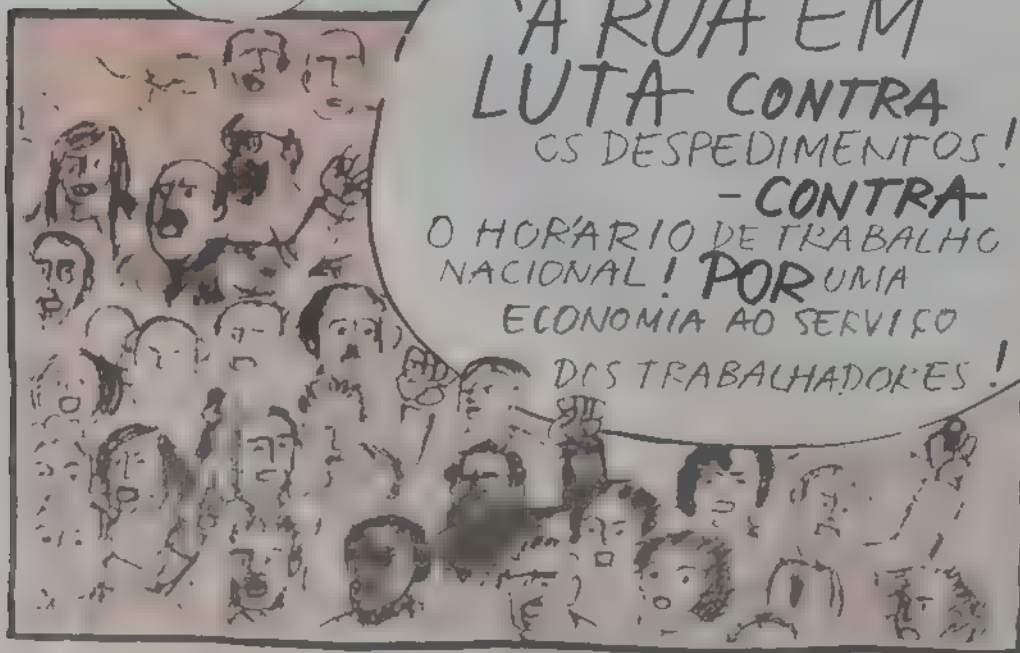 À RUA EM
LUTA CONTRA
OS DESPEDIMENTOS!
- CONTRA
O HORÁRIO DE TRABALHO
NACIONAL! POR UMA
ECONOMIA AO SERVIÇO
DOS TRABALHADORES!